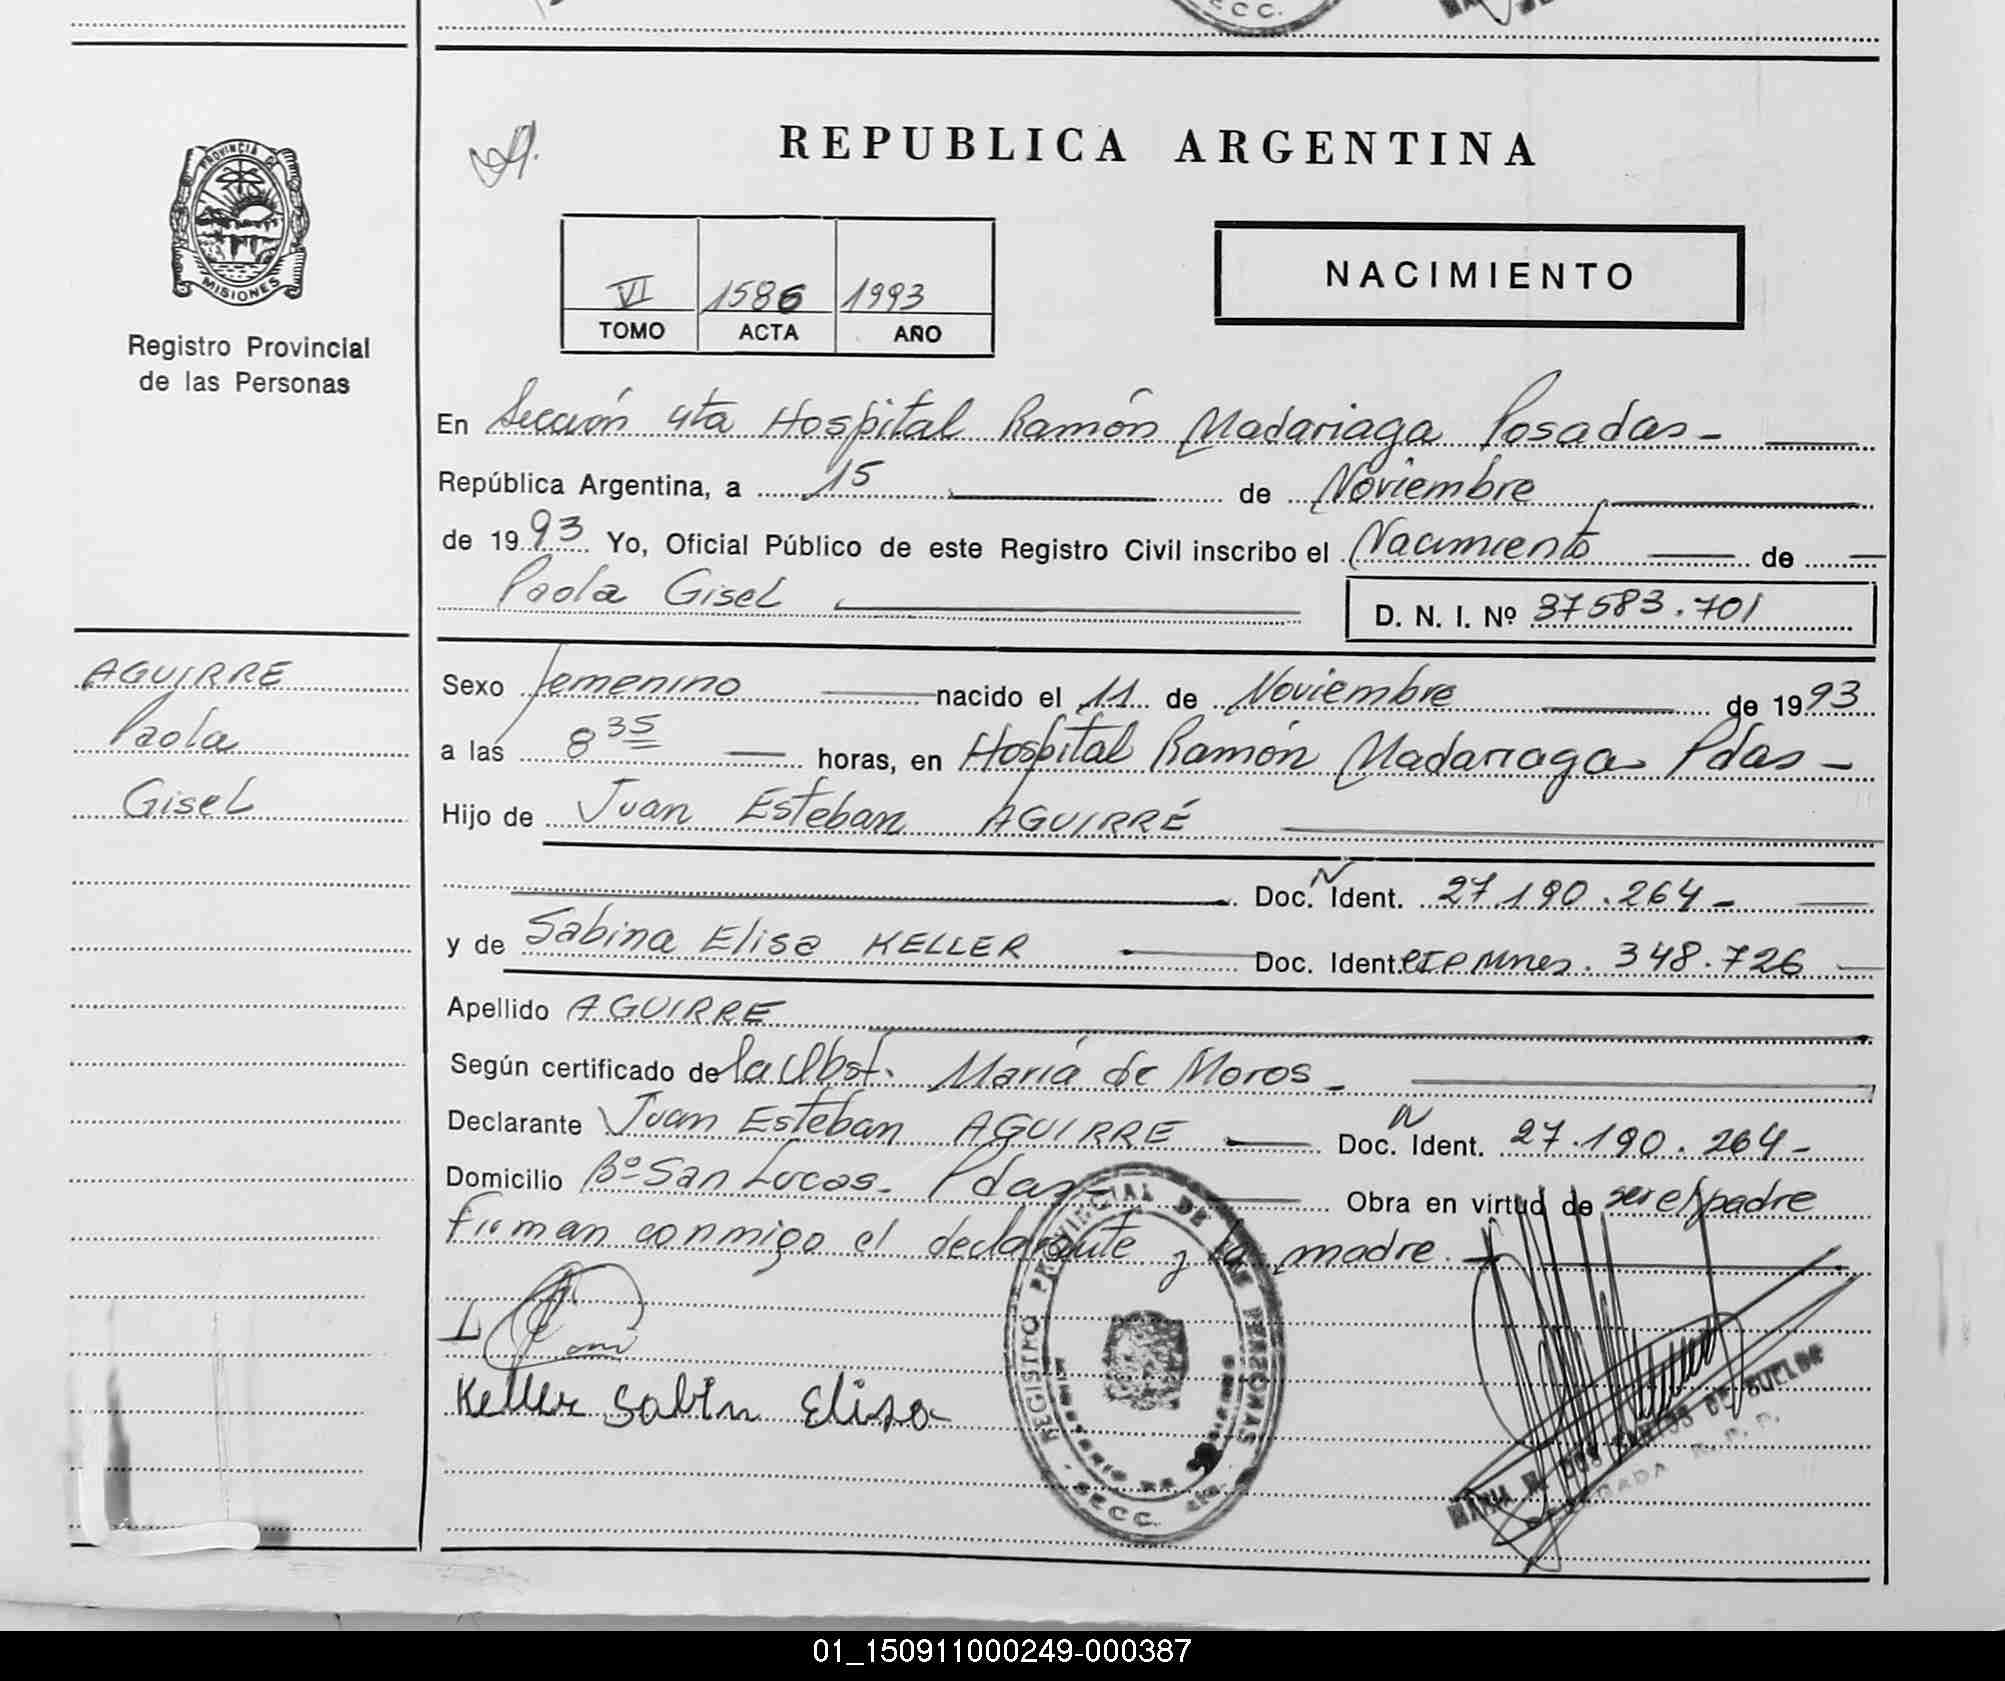 REPUBLICA ARGENTINA
PROVINCIA D
MISIONES
Registro Provincial
de las Personas
VI 1586 1993
TOMO ACTA AÑO
NACIMIENTO
En Sección 4ta Hospital Ramón Madariaga Posadas -
República Argentina, a 15 de Noviembre
de 1993 Yo, Oficial Público de este Registro Civil inscribo el Nacimiento de
Paola Gisel D. N. I. Nº 37583.701
AGUIRRE
Paola
Gisel
Sexo femenino nacido el 11 de Noviembre de 1993
a las 8 35 horas, en Hospital Ramón Madariaga Pdas -
Hijo de Juan Esteban AGUIRRÉ
Doc. N Ident. 27.190.264 -
y de Sabina Elisa KELLER Doc. Ident. CIPMnes. 348.726
Apellido AGUIRRE
Según certificado de la Obst. María de Moros -
Declarante Juan Esteban AGUIRRE Doc. N Ident. 27.190.264 -
Domicilio Bº San Lucas. Pdas - Obra en virtud de ser el padre
firman conmigo el declarante y la madre.
Keller Sabin Elisa
REGISTRO PROVINCIAL DE LAS PERSONAS
SECC.
MARIA DOS SANTOS DE SUELDO
R. P. P.
01_150911000249-000387